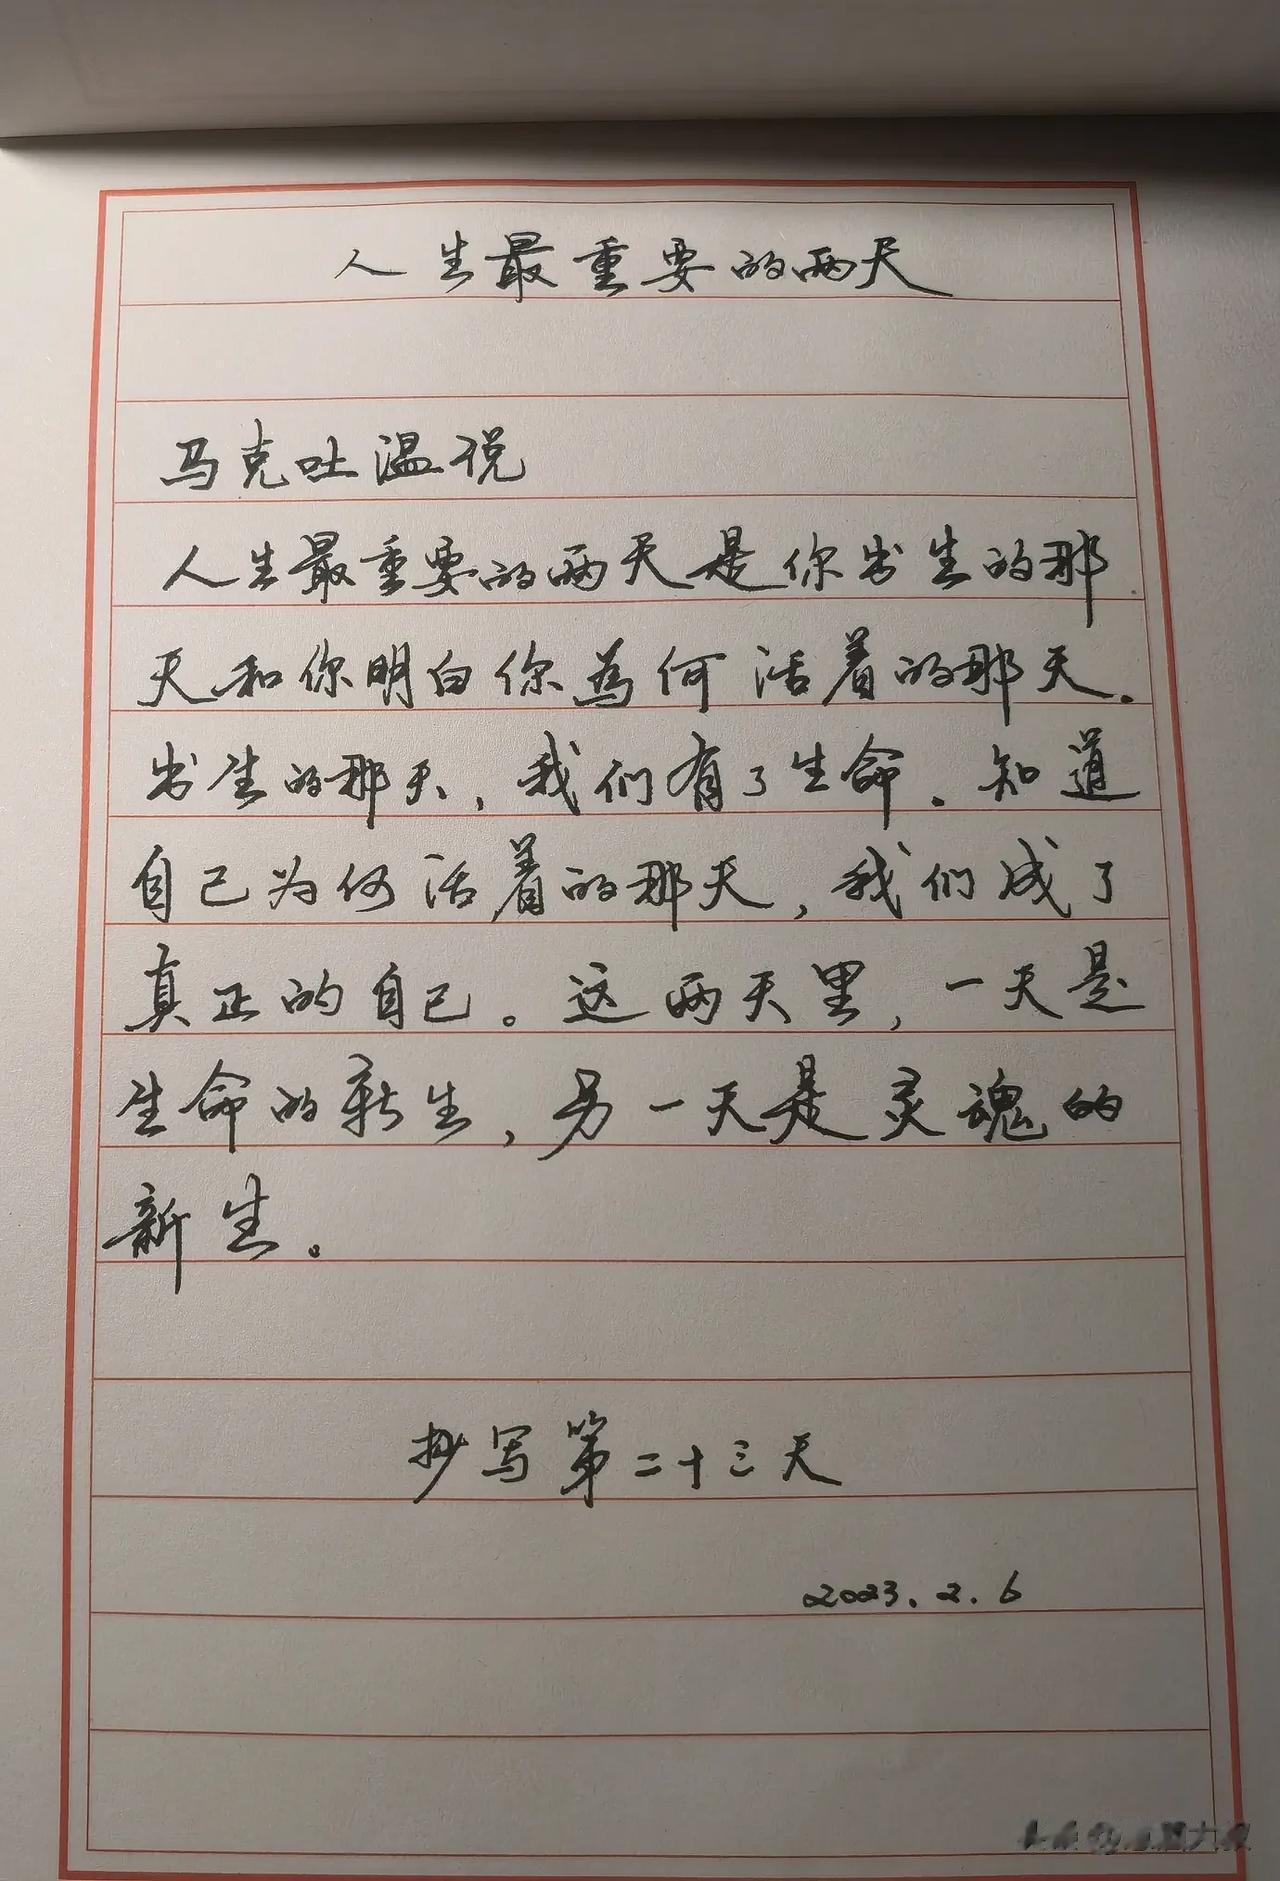 人生最重要的两天
马克吐温说
人生最重要的两天是你出生的那
天和你明白你為何活着的那天.
出生的那天,我们有了生命.知道
自己为何活着的那天,我们成了
真正的自己。这两天里,一天是
生命的新生,另一天是灵魂的
新生。
抄写第二十三天
2023.2.6